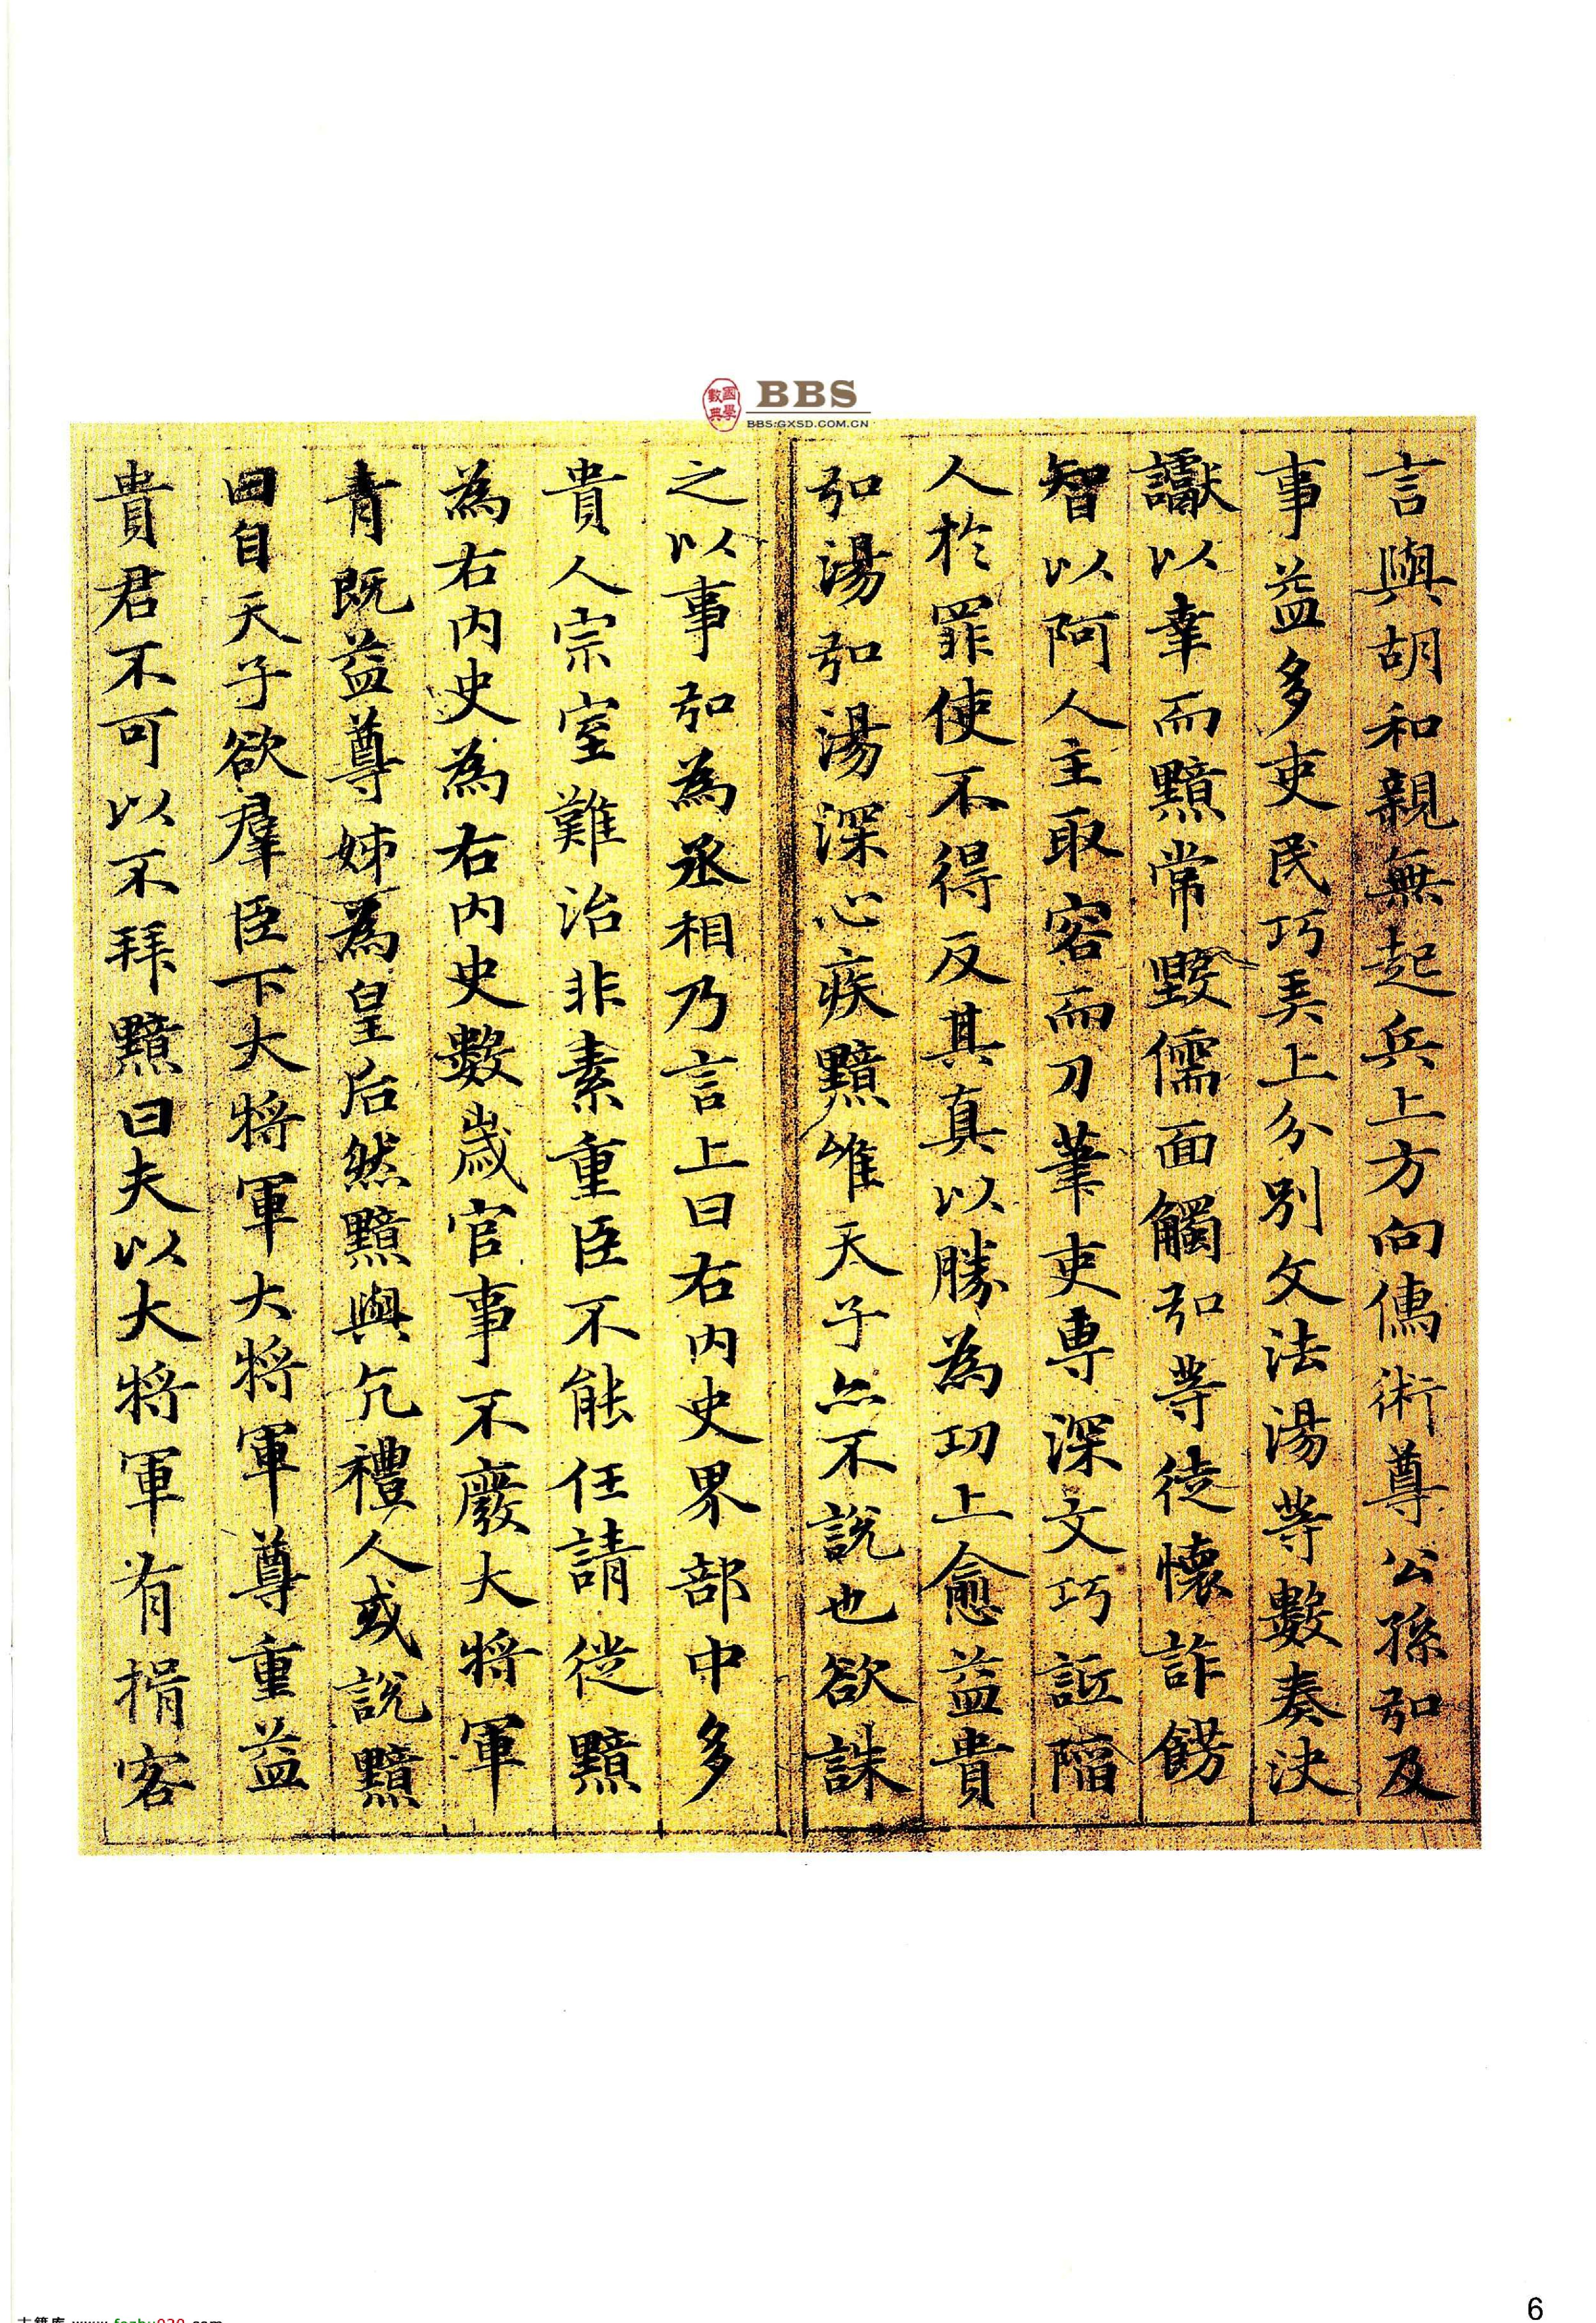 國學數典
BBS
BBS:GXSD.COM.CN
言與胡和親無起兵上方向儁術尊公孫弘及
事益多吏民巧弄上分別文法湯等數奏決
讞以幸而黯常毀儒面觸弘等徒懷詐飾
智以阿人主取容而刀筆吏專深文巧詆陷
人於罪使不得反其真以勝為功上愈益貴
弘湯弘湯深心疾黯唯天子亦不說也欲誅
之以事弘為丞相乃言上曰右內史界部中多
貴人宗室難治非素重臣不能任請徙黯
為右內史為右內史數歲官事不廢大將軍
青既益尊姊為皇后然黯與亢禮人或說黯
曰自天子欲羣臣下大將軍大將軍尊重益
貴君不可以不拜黯曰夫以大將軍有揖客
6